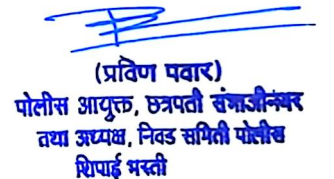 (प्रविण पवार)
पोलीस आयुक्त, छत्रपती संभाजीनगर
तथा अध्यक्ष, निवड समिती पोलीस
शिपाई भरती